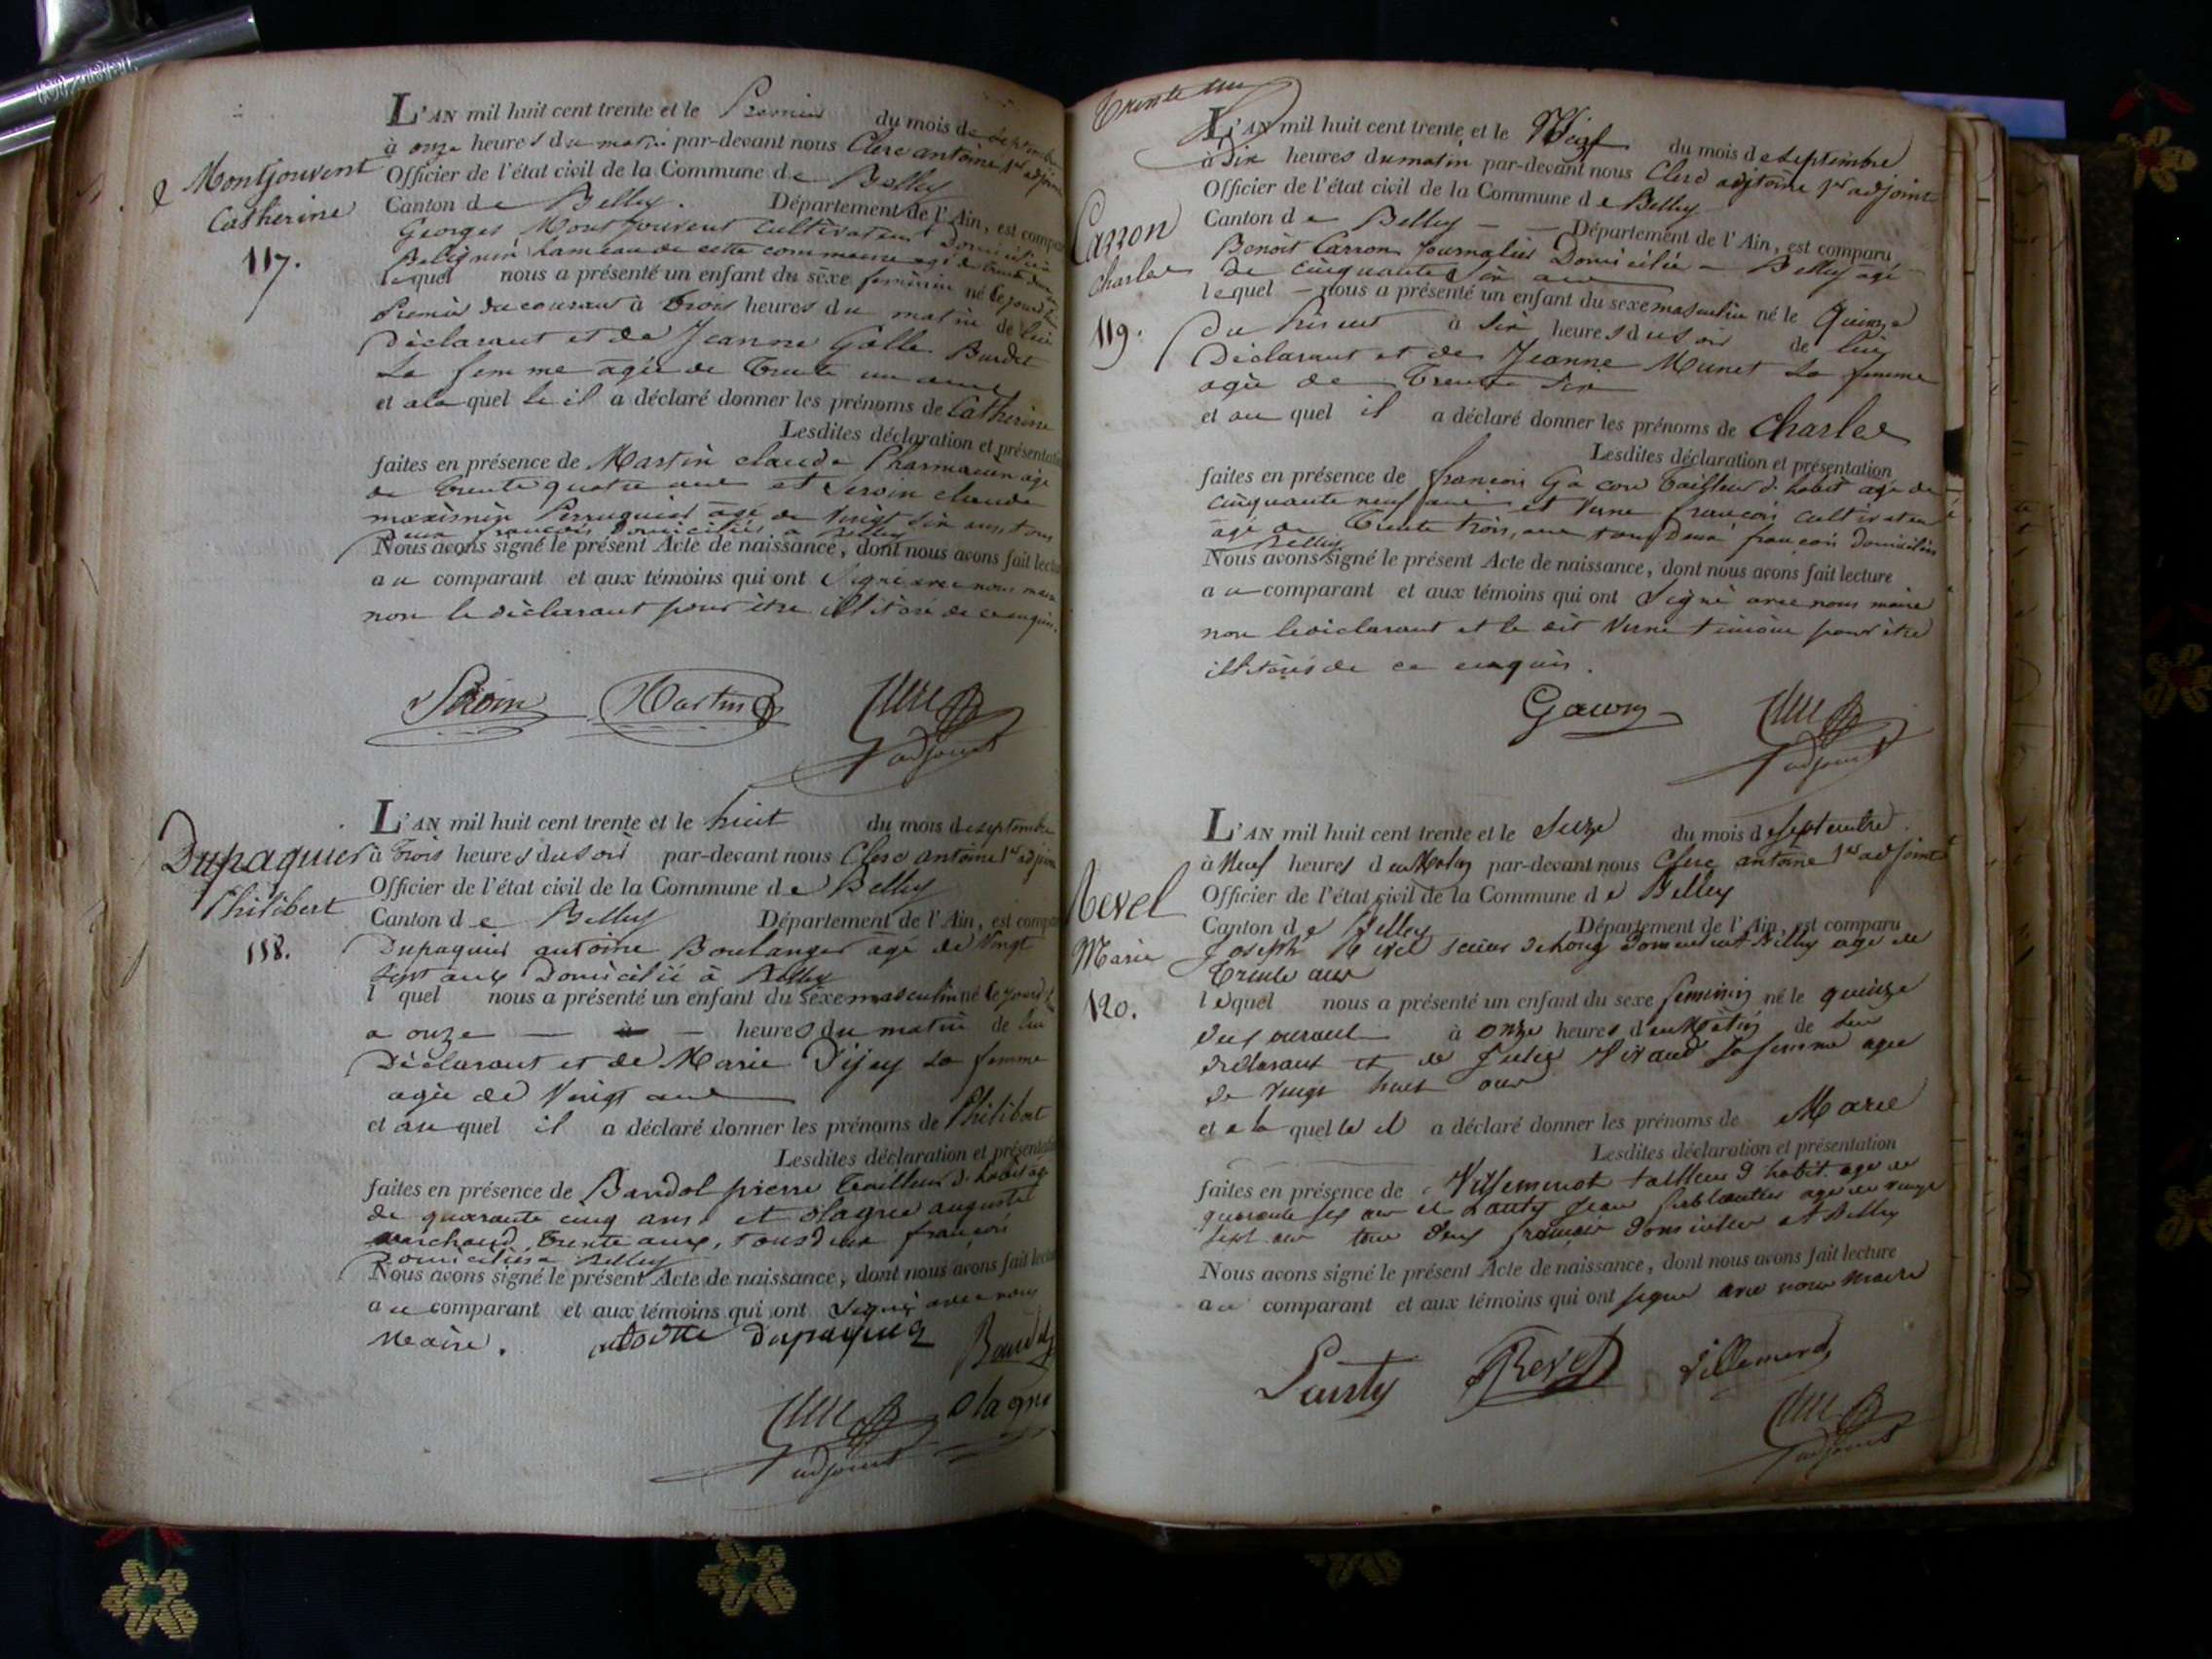 Montjouvent
Catherine
117.
L'AN mil huit cent trente et le Premier du mois de septembre
à onze heures du matin par-devant nous Clerc antoine 1er adjoint
Officier de l'état civil de la Commune de Belley
Canton de Belley. Département de l'Ain, est compa
Georges Montjouvent Cultivateur Domicilié
Belignin hameau de cette commune agé de trente deux
lequel nous a présenté un enfant du sexe feminin né le jourdh
Premier du courant à trois heures du matin de lui
Déclarant et de Jeanne Golle Burdet
sa femme agée de trente un ans
et a la quel le il a déclaré donner les prénoms de Catherine
Lesdites déclaration et présentatio
faites en présence de Martin claude Pharmacien agé
de trente quatre ans et Seroin claude
maximin Perruquier agé de vingt six ans, tous
deux francois Domiciliés a Belley
Nous avons signé le présent Acte de naissance, dont nous avons fait lectu
au comparant et aux témoins qui ont signé avec nous maire
non le déclarant pour être illitéré de ce enquis.
Seroin Martin Clerc
adjoint
Dupaquier
Philibert
118.
L'AN mil huit cent trente et le huit du mois de septembre
à trois heures du soir par-devant nous Clerc antoine 1er adjoin
Officier de l'état civil de la Commune de Belley
Canton de Belley Département de l'Ain, est compa
Dupaquier antoine Boulanger agé de vingt
sept ans Domicilié à Belley
l quel nous a présenté un enfant du sexe masculin né le jourd'h
a onze — à — heures du matin de lui
Déclarant et de Marie Dijey sa femme
agée de vingt ans
et au quel il a déclaré donner les prénoms de Philibert
Lesdites déclaration et présentatio
faites en présence de Baudol pierre Tailleur d'habit agé
de quarante cinq ans et olagnié auguste
marchand, trente ans, tous deux francois
Domiciliés a Belley
Nous avons signé le présent Acte de naissance, dont nous avons fait lectu
au comparant et aux témoins qui ont signé avec nous
Maire. antoine dupaquier
Clerc olagni
adjoint
trente un
Carron
Charles
119.
L'AN mil huit cent trente et le du mois de septembre
à dix heures du matin par-devant nous Clerc antoine 1er adjoint
Officier de l'état civil de la Commune de Belley
Canton de Belley — — Département de l'Ain, est comparu
Benoit Carron Journalier Domicilié a Belley agé
de cinquante six ans
lequel — nous a présenté un enfant du sexe masculin né le Quinze
Du présent à six heures du soir de lui
Déclarant et de Jeanne Munet sa femme
agée de trente six
et au quel il a déclaré donner les prénoms de Charles
Lesdites déclaration et présentation
faites en présence de francois Gacon Tailleur d'habit agé de
cinquante neuf ans et Verne francois cultivateur
agé de trente trois, ans tous deux francois Domiciliés
Belley
Nous avons signé le présent Acte de naissance, dont nous avons fait lecture
au comparant et aux témoins qui ont signé avec nous maire
non le déclarant et le dit Verne témoin pour être
illitérés de ce enquis.
Gacon Clerc
adjoint
Revel
Marie
120.
L'AN mil huit cent trente et le seize du mois de septembre
à Neuf heures du Matin par-devant nous Clerc antoine 1er adjoint
Officier de l'état civil de la Commune de Belley
Canton de Belley Département de l'Ain, est comparu
Joseph Revel scieur de long Domicilié a Belley agé de
trente ans
lequel nous a présenté un enfant du sexe feminin né le quinze
du courant à onze heures du Matin de lui
déclarant et de Julie Vivaud sa femme agée
de vingt huit ans
et a la quelle il a déclaré donner les prénoms de Marie
Lesdites déclaration et présentation
faites en présence de Villeminot tailleur d'habit agé de
quarante six ans et Lauty Jean ferblantier agé de vingt
sept ans tous deux francois domiciliés a Belley
Nous avons signé le présent Acte de naissance, dont nous avons fait lecture
au comparant et aux témoins qui ont signé avec nous Maire
Lauty Revel Villeminot
Clerc
adjoint